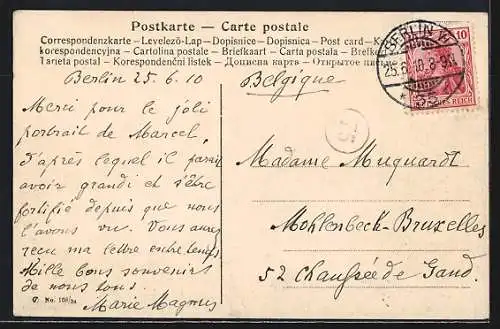 Postkarte — Carte postale
Correspondenzkarte – Levelező-Lap – Dopisnice – Dopisnica – Post card –
korespondencyjna – Cartolina postale – Briefkaart – Carta postala –
Tarjeta postal – Korespondenční listek – Дописна карта – Открытое
BERLIN W.
25.6.10.8-9
10
REICH
Berlin 25.6.10
Belgique
Merci pour le joli
portrait de Marcel,
d'après lequel il paraît
avoir grandi et s'être
fortifié depuis que nous
l'avons vu. Vous avez
reçu ma lettre entretemps.
Mille bons souvenirs
de nous tous.
Marie Magnus
Madame Muquardt
Mohlenbeck-Bruxelles
52 Chaussée de Gand.